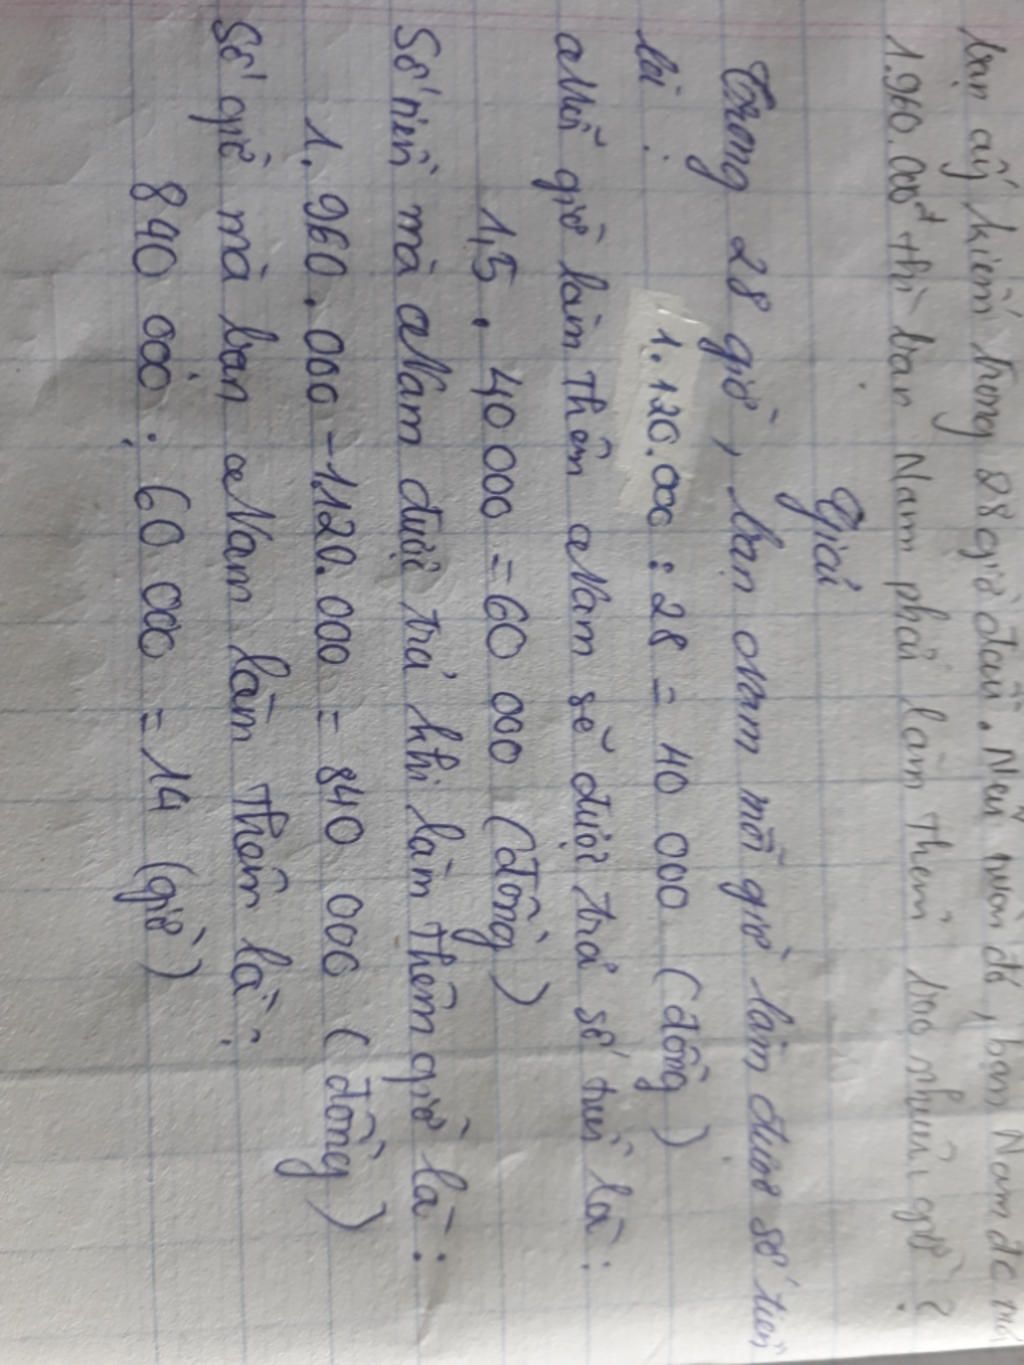 bạn ấy kiếm trong 28 giờ đầu. Nếu tuần đó, bạn Nam đc
1.960.000đ thì bạn Nam phải làm thêm bao nhiêu giờ?
Giải
Trong 28 giờ, bạn Nam mỗi giờ làm được số tiền
là:
1.120.000 : 28 = 40 000 (đồng)
Mỗi giờ làm thêm Nam sẽ được trả số tiền là:
1,5 . 40 000 = 60 000 (đồng)
Số tiền mà Nam được trả khi làm thêm giờ là:
1.960.000 - 1.120.000 = 840 000 (đồng)
Số giờ mà bạn Nam làm thêm là:
840 000 : 60 000 = 14 (giờ)